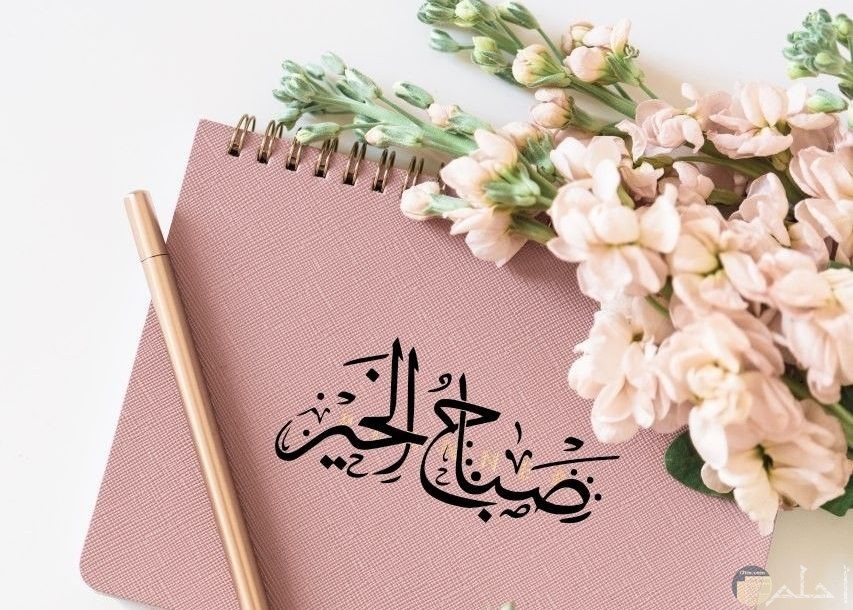 صباح الخير
أحلم